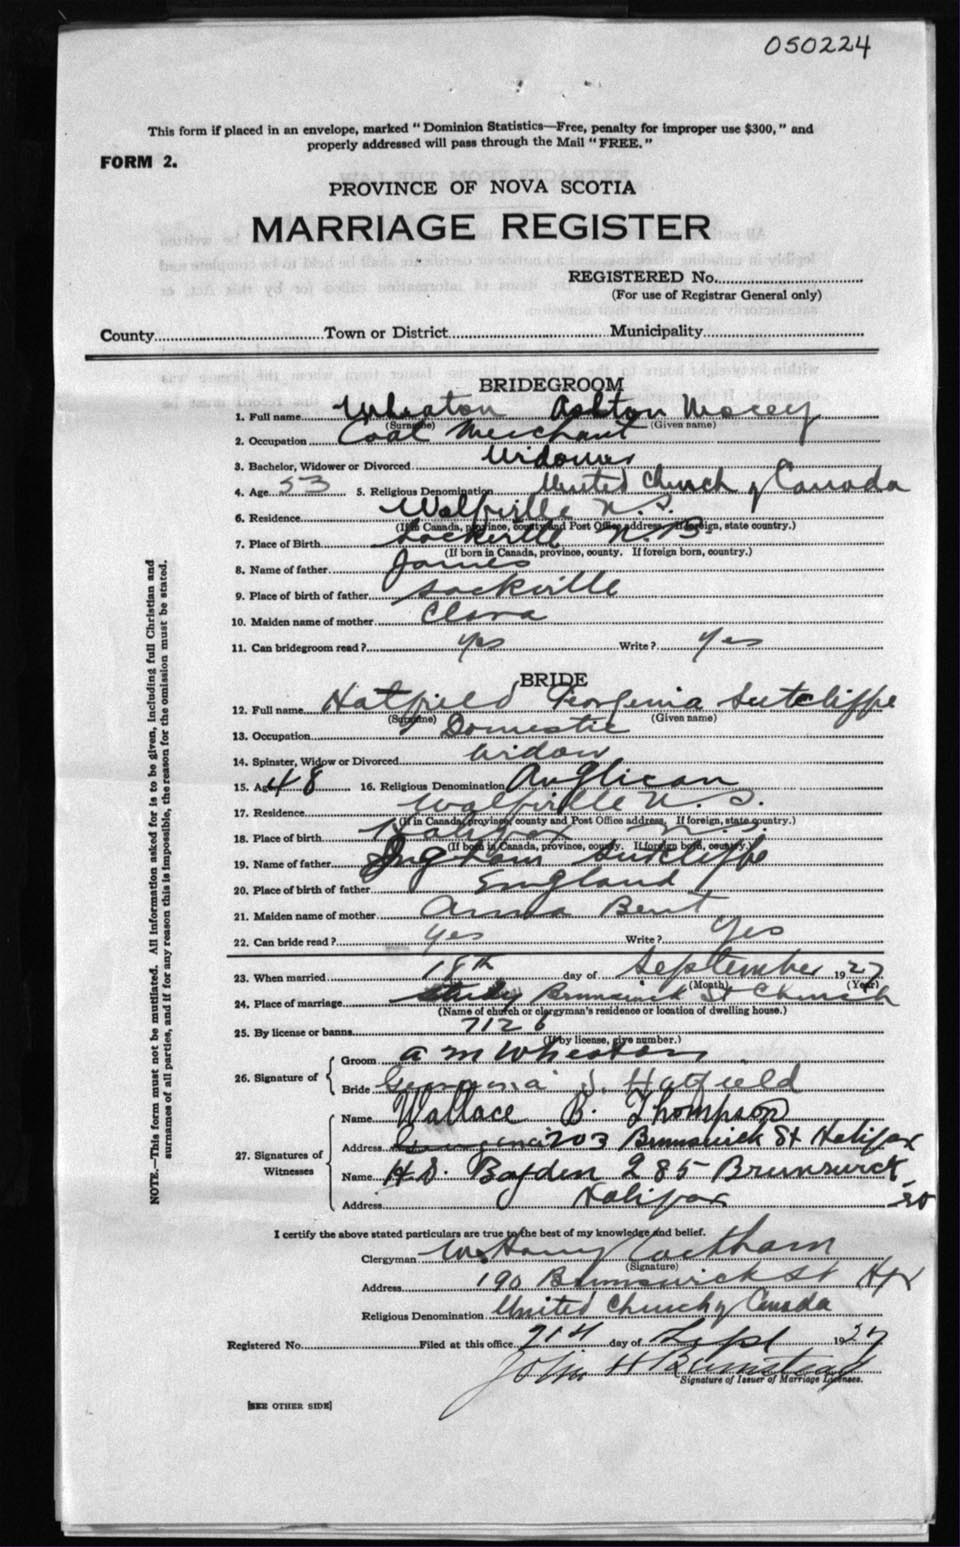 050224
This form if placed in an envelope, marked "Dominion Statistics—Free, penalty for improper use $300," and
properly addressed will pass through the Mail "FREE."
FORM 2.
PROVINCE OF NOVA SCOTIA
MARRIAGE REGISTER
REGISTERED No.
(For use of Registrar General only)
County Town or District Municipality
BRIDEGROOM
1. Full name Wheaton Ashton
(Surname) (Given name)
2. Occupation Coal Merchant
3. Bachelor, Widower or Divorced Widower
4. Age 53 5. Religious Denomination United Church of Canada
6. Residence Wolfville N.S.
(If in Canada, province, county and Post Office address. If foreign, state country.)
7. Place of Birth Sackville N.B.
(If born in Canada, province, county. If foreign born, country.)
8. Name of father James
9. Place of birth of father Sackville
10. Maiden name of mother Clara
11. Can bridegroom read? yes Write? Yes
BRIDE
12. Full name Hatfield Georgenia Sutcliffe
(Surname) (Given name)
13. Occupation Domestic
14. Spinster, Widow or Divorced Widow
15. Age 48 16. Religious Denomination Anglican
17. Residence Wolfville N.S.
(If in Canada, province, county and Post Office address, If foreign, state country.)
18. Place of birth Halifax N.S.
(If born in Canada, province, county. If foreign born, country.)
19. Name of father Ingham Sutcliffe
20. Place of birth of father England
21. Maiden name of mother Anna Bent
22. Can bride read? Yes Write? Yes
23. When married 18th day of September 1927
(Month) (Year)
24. Place of marriage Brunswick St Church
(Name of church or clergyman's residence or location of dwelling house.)
25. By license or banns 7126
(If by license, give number.)
26. Signature of Groom A M Wheaton
Bride Georgenia S. Hatfield
27. Signatures of Witnesses
Name Wallace B. Thompson
Address 203 Brunswick St Halifax
Name H.D. Bayden 285 Brunswick
Address Halifax
I certify the above stated particulars are true to the best of my knowledge and belief.
Clergyman W. Harry
(Signature)
Address 190 Brunswick St Hfx
Religious Denomination United Church of Canada
Registered No. Filed at this office 21st day of Sept 1927
John H Bumstead
Signature of Issuer of Marriage Licenses.
[SEE OTHER SIDE]
NOTE.—This form must not be mutilated. All information asked for is to be given, including full Christian and
surnames of all parties, and if for any reason this is impossible, the reason for the omission must be stated.